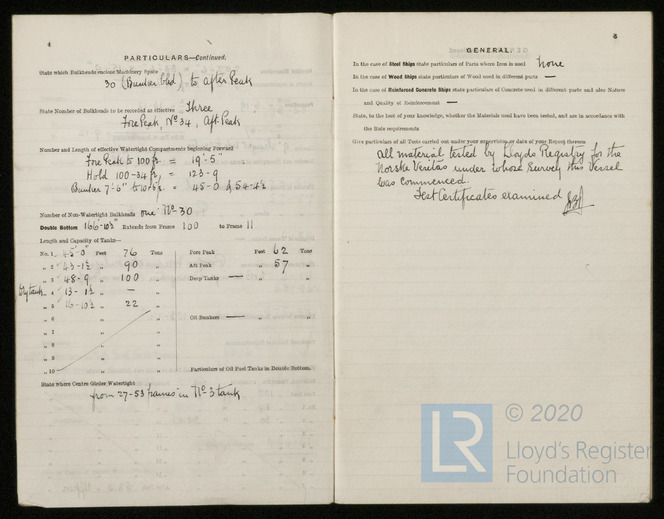 4
PARTICULARS—Continued.
State which Bulkheads enclose Machinery Space
30 (Bunker Bhd) to after Peak
State Number of Bulkheads to be recorded as effective Three
Fore Peak, No 34, Aft Peak
Number and Length of effective Watertight Compartments beginning Forward
Fore Peak to 100 fr. = 19'-5"
Hold 100-34 fr, = 123-9
Bunker 7'-6" to = 45-0 & 54-4½
Number of Non-Watertight Bulkheads one No-30
Double Bottom 166-10½" Extends from Frame 100 to Frame 11
Length and Capacity of Tanks—
No. 1 45'-0" Feet 76 Tons
„ 2 43-1½ „ 90 „
„ 3 48-9 „ 100 „
Dry tank „ 4 13-1½ „ — „
„ 5 16-10½ „ 22 „
„ 6 „ „
„ 7 „ „
„ 8 „ „
„ 9 „ „
„ 10 „ „
Fore Peak Feet 62 Tons
Aft Peak „ 57 „
Deep Tanks — „ „
Oil Bunkers — „ „
Particulars of Oil Fuel Tanks in Double Bottom.
State where Centre Girder Watertight
from 27-53 frames in No 3 tank
5
GENERAL.
In the case of Steel Ships state particulars of Parts where Iron is used none
In the case of Wood Ships state particulars of Wood used in different parts —
In the case of Reinforced Concrete Ships state particulars of Concrete used in different parts and also Nature
and Quality of Reinforcement —
State, to the best of your knowledge, whether the Materials used have been tested, and are in accordance with
the Rule requirements
Give particulars of all Tests carried out under your supervision or date of your Report thereon
All material tested by Lloyds Registry for the
Norske Veritas under whose survey this vessel
was commenced.
Test Certificates examined
© 2020
LR
Lloyd's Register
Foundation